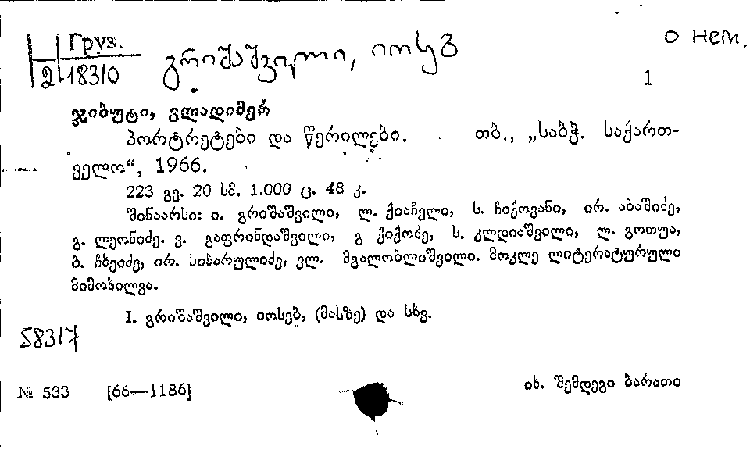 Груз.
2 18310
გრიშაშვილი, იოსებ
О нем.
1
ჯიბუტი, ვლადიმერ
პორტრეტები და წერილები. თბ., „საბჭ. საქართ-
ველო“, 1966.
223 გვ. 20 სმ. 1.000 ც. 48 კ.
შინაარსი: ი. გრიშაშვილი, ლ. ქიაჩელი, ს. ჩიქოვანი, ირ. აბაშიძე,
გ. ლეონიძე. ვ. გაფრინდაშვილი, გ ქიქოძე, ს. კლდიაშვილი, ლ. გოთუა,
ბ. ჩხეიძე, ირ. სიხარულიძე, ელ. მგალობლიშვილი. მოკლე ლიტერატურული
მიმოხილვა.
I. გრიშაშვილი, იოსებ, (მასზე) და სხვ.
58317
№ 533 [66—1186]
იხ. შემდეგი ბარათი